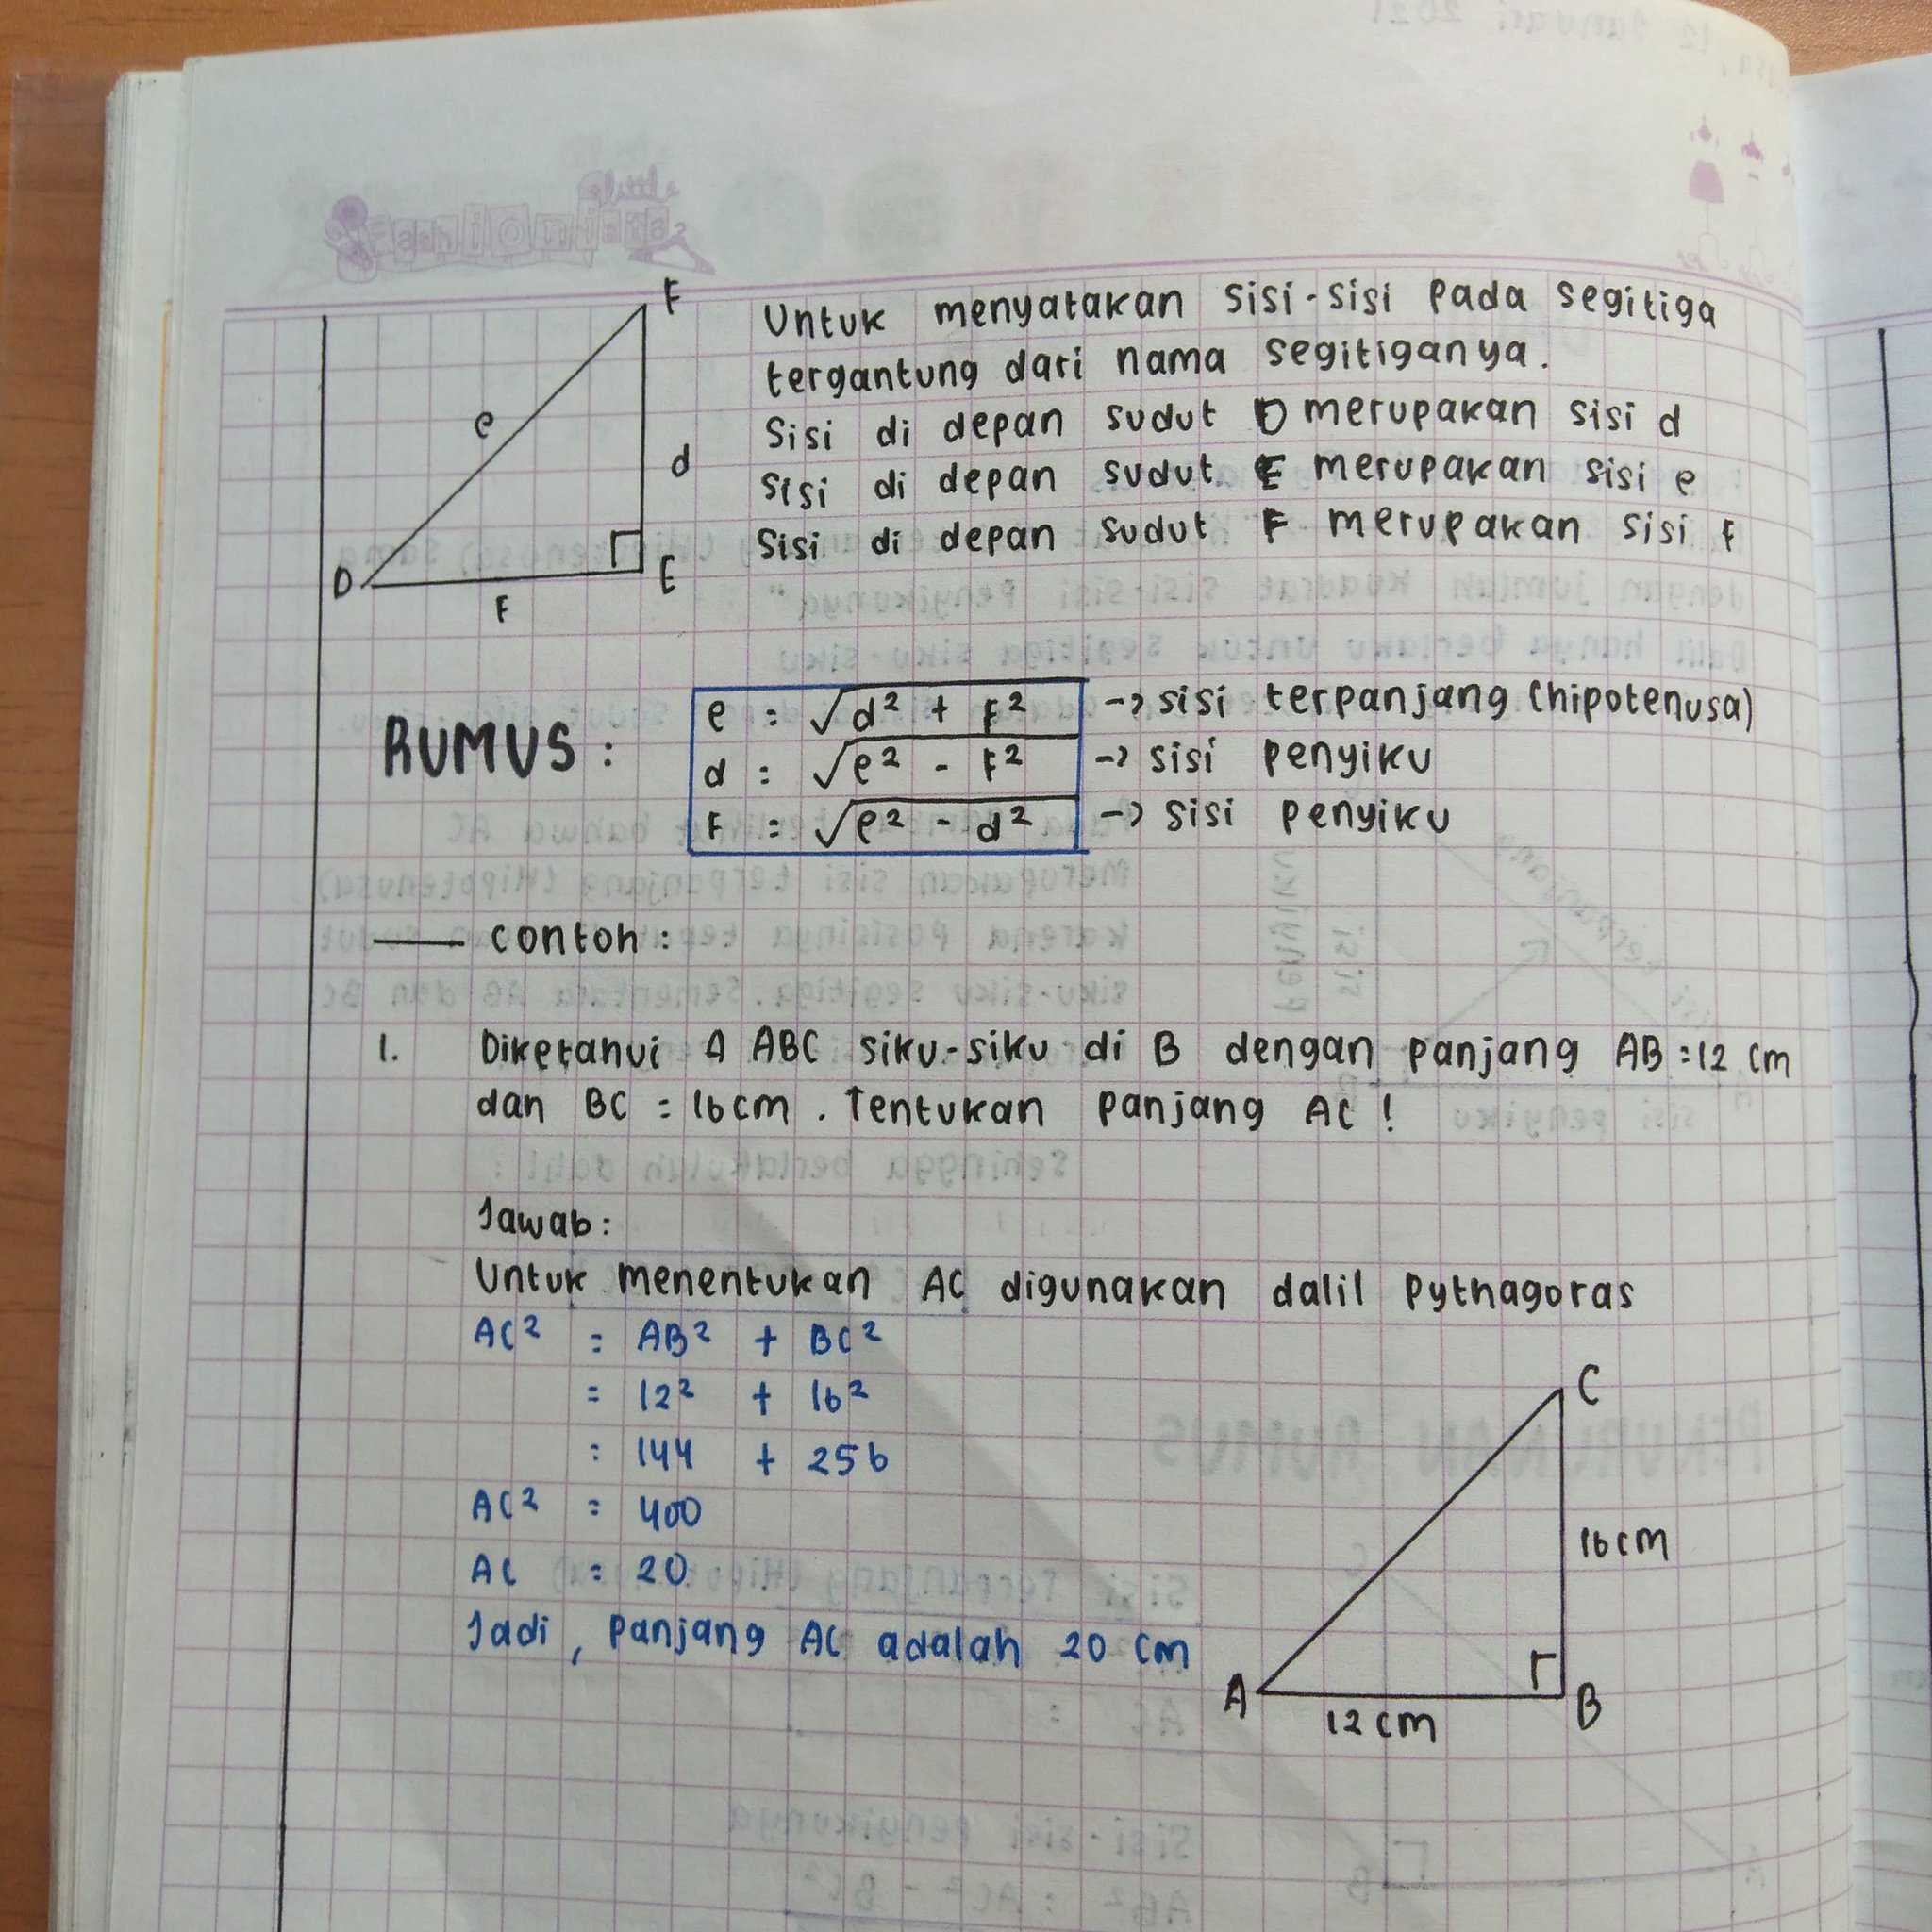 F
e
d
D
E
F
Untuk menyatakan sisi-sisi pada segitiga
tergantung dari nama segitiganya.
Sisi di depan sudut D merupakan sisi d
Sisi di depan sudut E merupakan sisi e
Sisi di depan sudut F merupakan sisi f
RUMUS :
e = √d² + f² -> sisi terpanjang (hipotenusa)
d = √e² - f² -> sisi penyiku
f = √e² - d² -> sisi penyiku
contoh :
1. Diketahui Δ ABC siku-siku di B dengan panjang AB = 12 cm
dan BC = 16 cm . Tentukan panjang AC !
Jawab :
Untuk menentukan AC digunakan dalil Pythagoras
AC² = AB² + BC²
= 12² + 16²
= 144 + 256
AC² = 400
AC = 20
Jadi , panjang AC adalah 20 cm
C
16 cm
A
B
12 cm